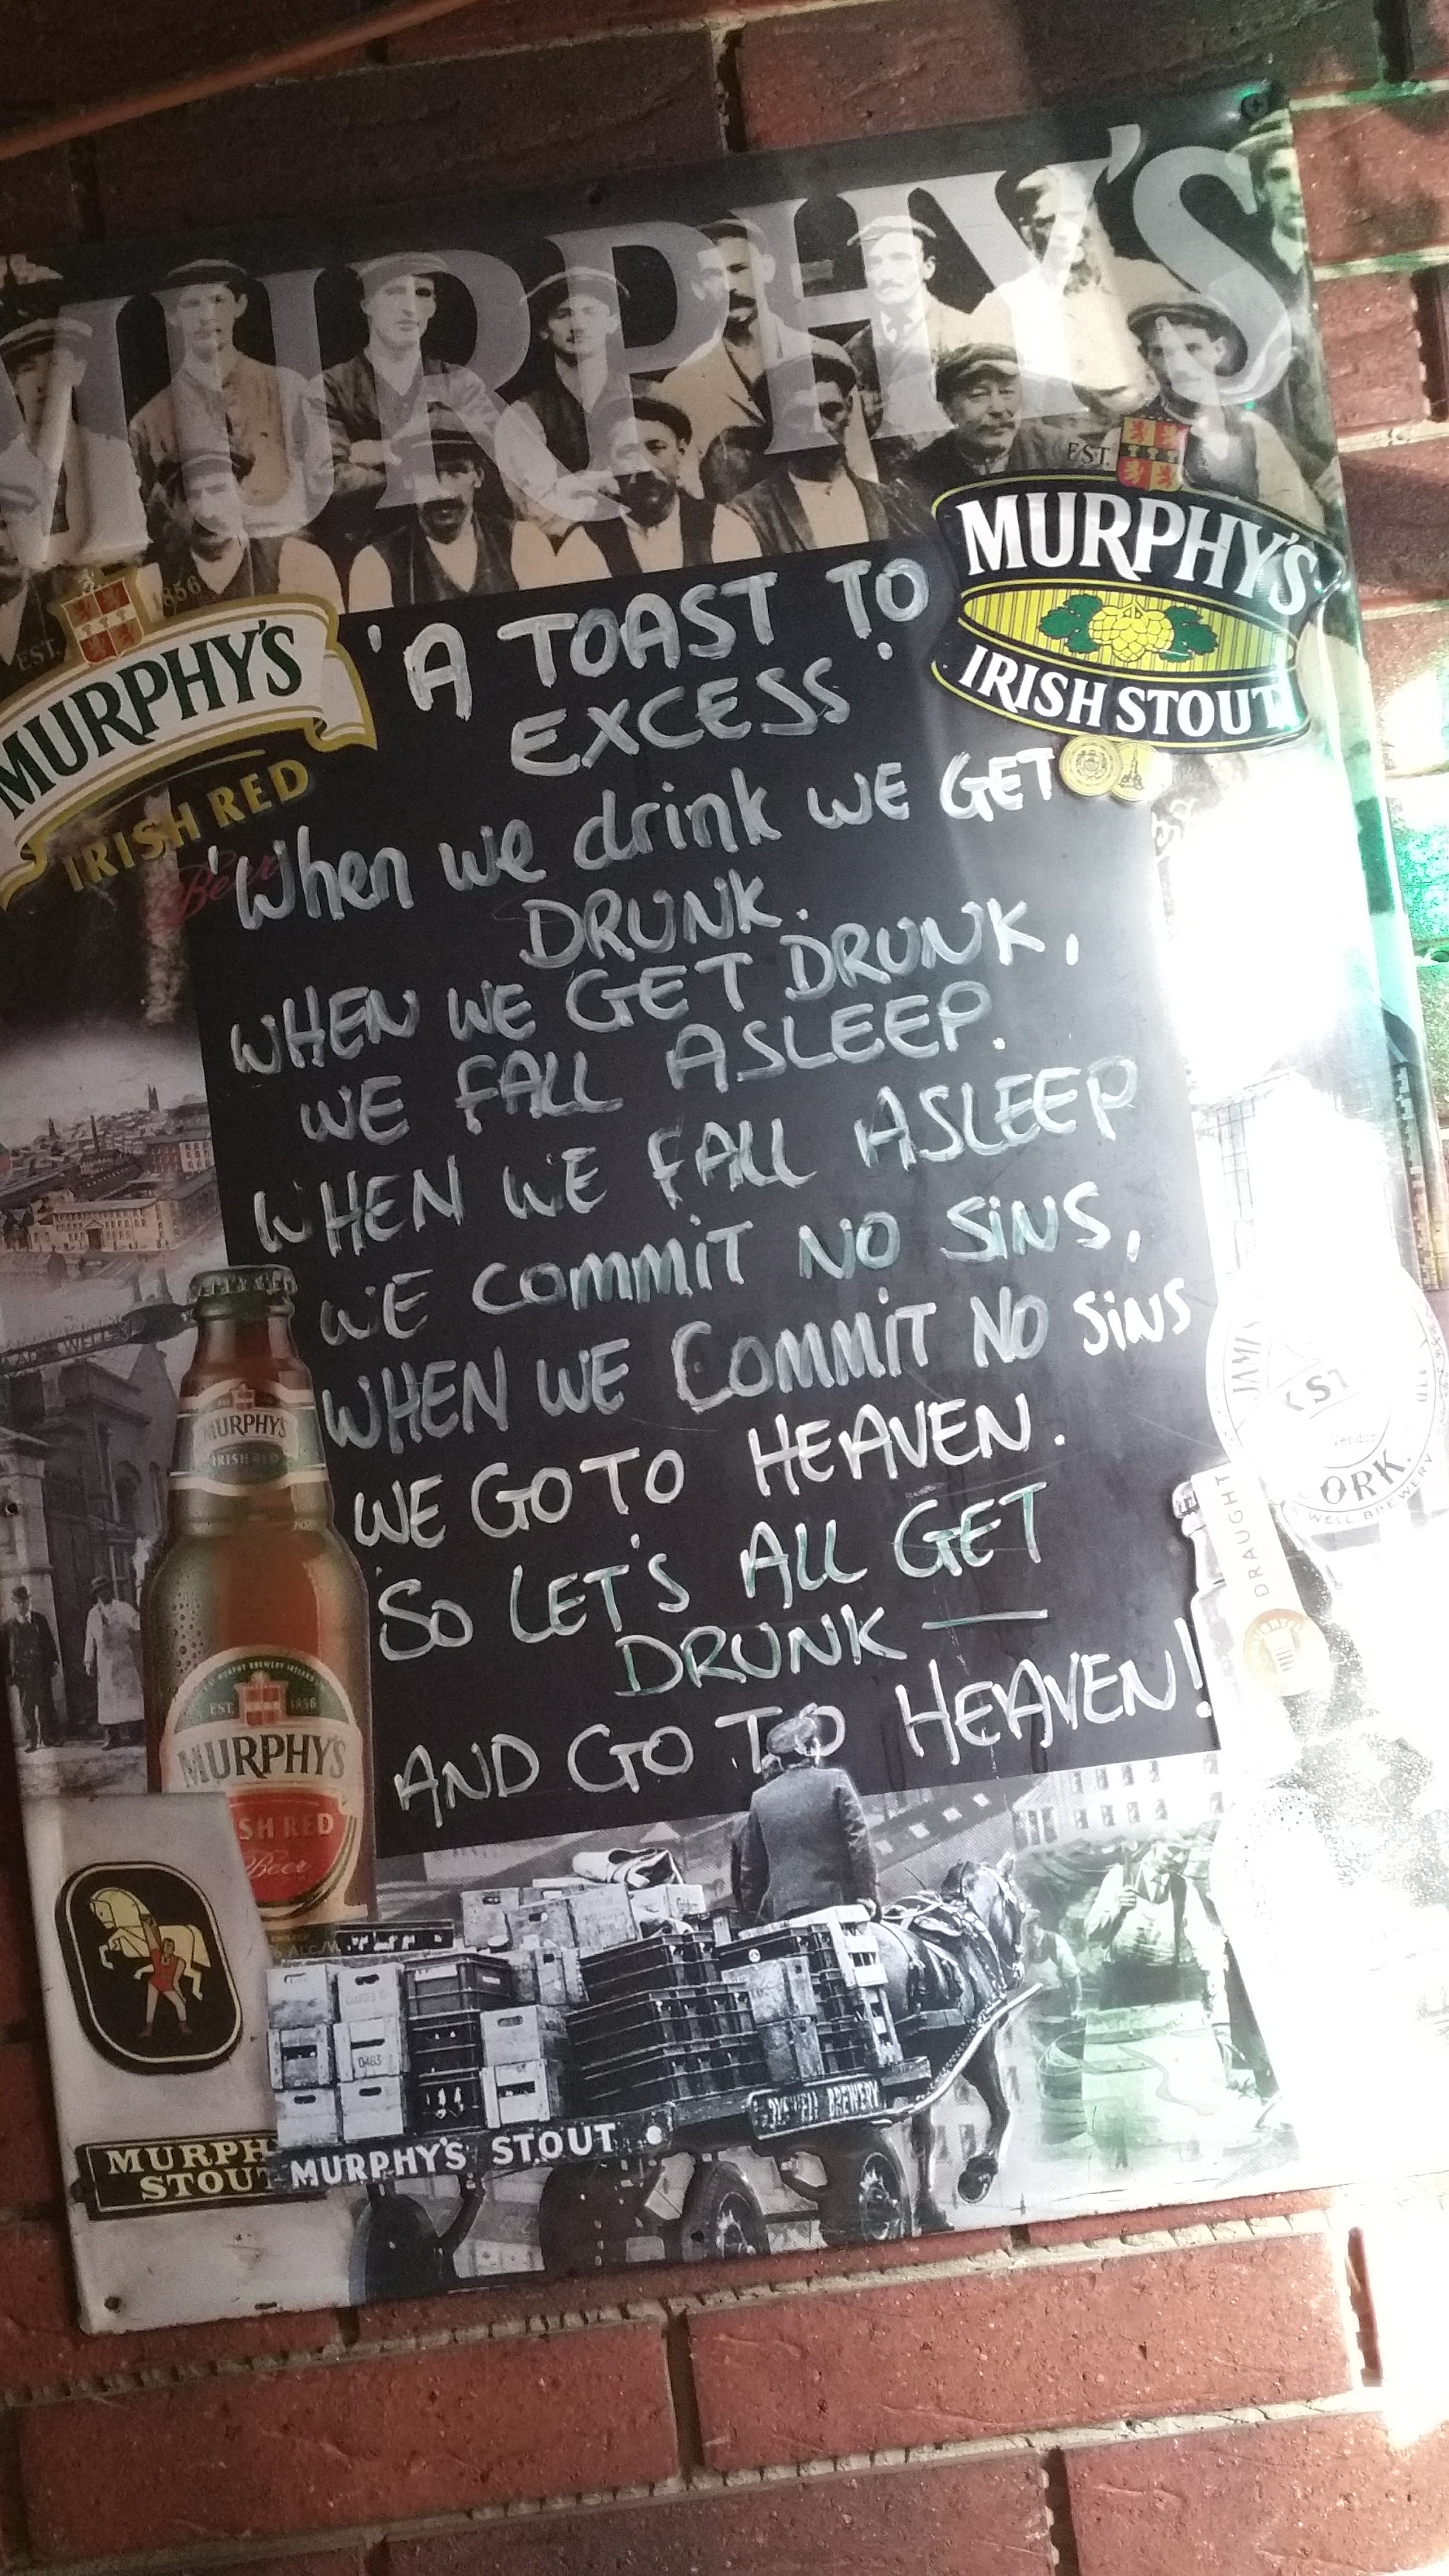 MURPHY'S
EST.
MURPHY'S
IRISH STOUT
EST. 1856
MURPHY'S
IRISH RED
Beer
'A TOAST TO
EXCESS'
'When we drink WE GET
DRUNK.
WHEN WE GET DRUNK,
WE FALL ASLEEP.
WHEN WE FALL ASLEEP
WE COMMIT NO SiNS,
WHEN WE COMMiT NO SiNS
WE GO TO HEAVEN.
SO LET'S ALL GET
DRUNK —
AND GO TO HEAVEN!
MURPHY'S
IRISH RED
EST. 1856
MURPHY'S
ISH RED
Beer
DRAUGHT
ORK.
WELL BREWERY
0463
BREWERY
MURPHY'S STOUT
MURPH
STOUT